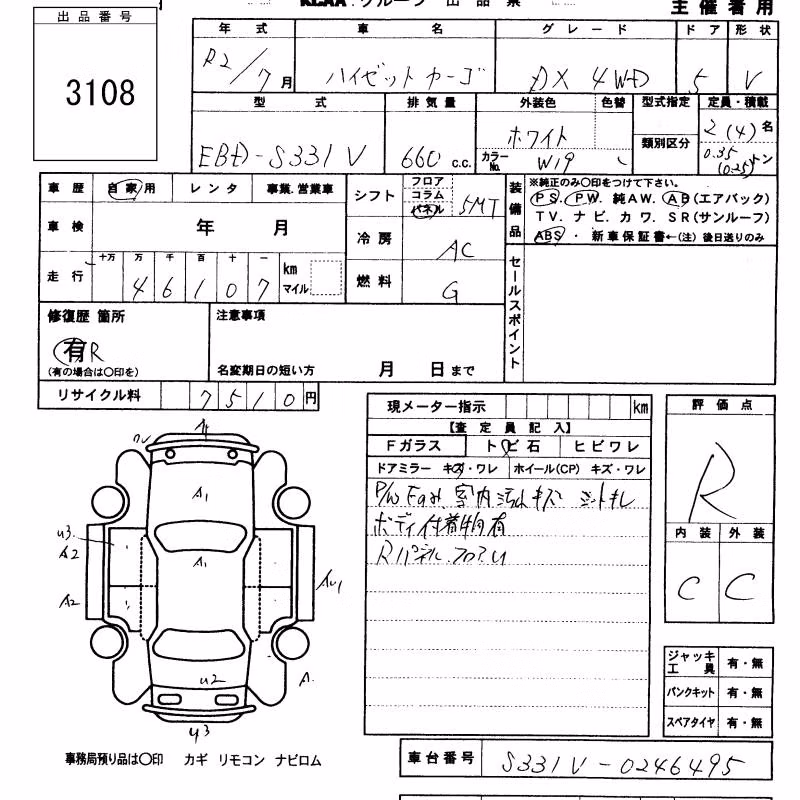 出品番号
3108
主催者用
年式 車名 グレード ドア 形状
R2/7月 ハイゼットカーゴ DX 4WD 5 V
型式 排気量 外装色 色替 型式指定 定員・積載
EBD-S331V 660 c.c. ホワイト 類別区分 2(4)名
カラーNo. W19 0.35(0.25)トン
車歴 自家用 レンタ 事業.営業車
シフト フロア コラム パネル 5MT
装備品 ※純正のみ○印をつけて下さい。
PS. PW. 純AW. AB(エアバック)
TV. ナビ. カワ. SR(サンルーフ)
ABS・新車保証書←(注)後日送りのみ
車検 年 月
冷房 AC
走行 十万 万 千 百 十 一 km マイル
46107
燃料 G
セールスポイント
修復歴 箇所
有 R
(有の場合は○印を)
注意事項
名変期日の短い方 月 日まで
リサイクル料 7510円
現メーター指示 km
【査定員記入】
Fガラス トビ石 ヒビワレ
ドアミラー キズ・ワレ ホイール(CP) キズ・ワレ
室内
ボディ付着物有
Rパネル フロアU
評価点
R
内装 外装
C C
A1
U3
A2
A1
A2
U2
A
U3
ジャッキ工具 有・無
パンクキット 有・無
スペアタイヤ 有・無
事務局預り品は○印 カギ リモコン ナビロム
車台番号 S331V-0246495